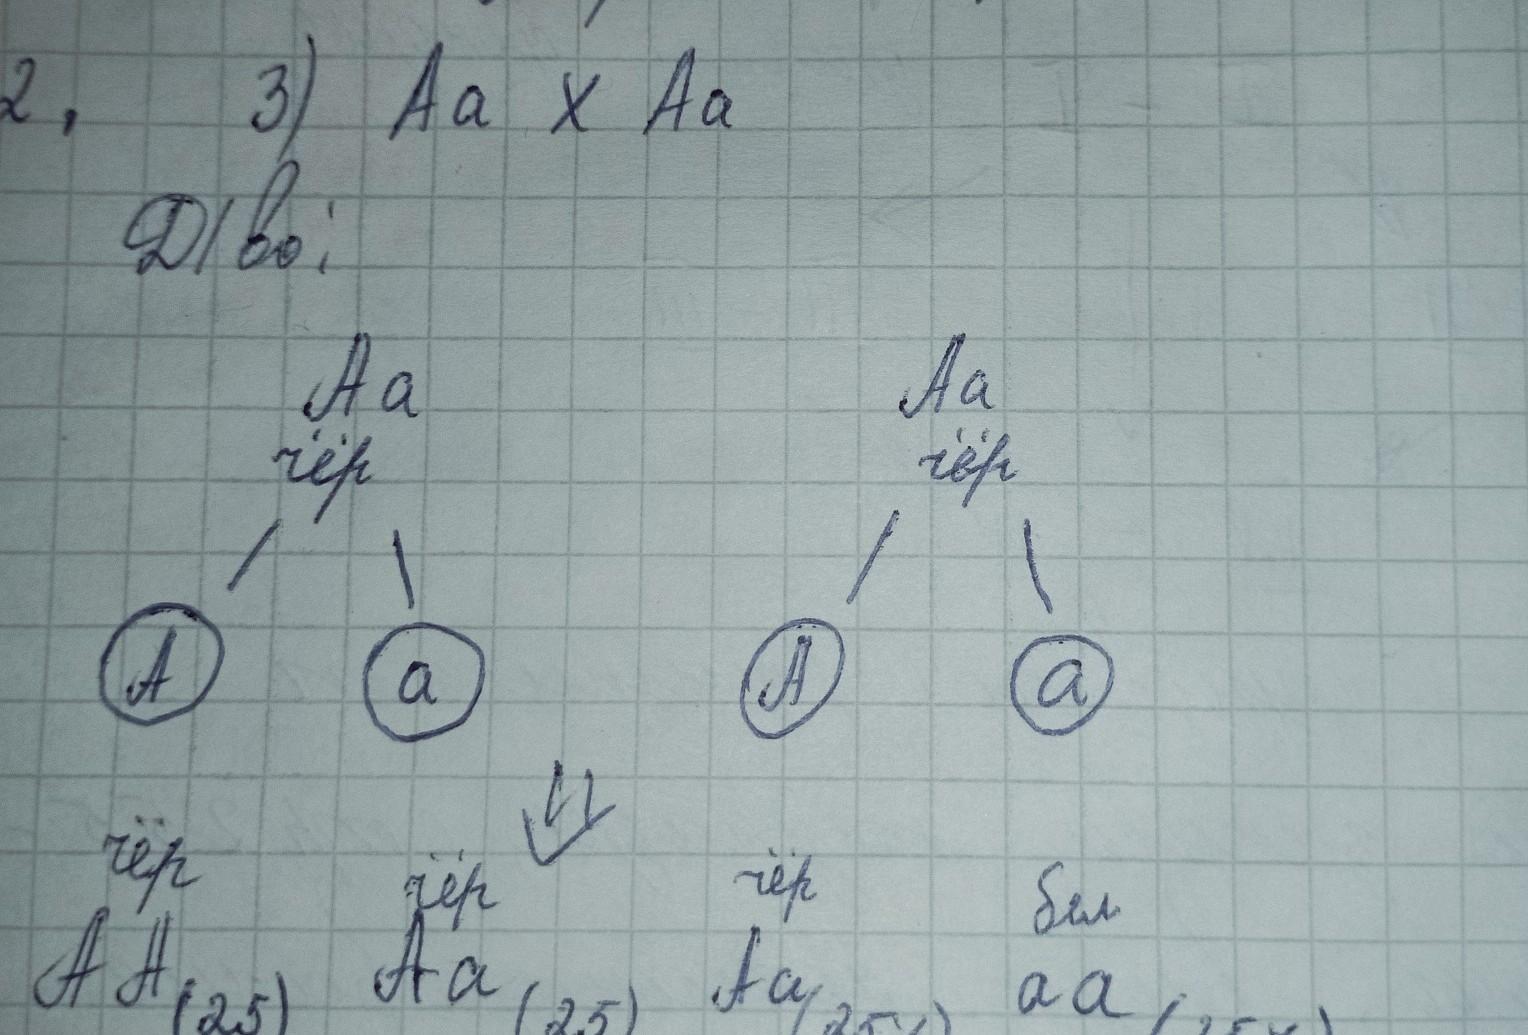 2. 3) Aa x Aa
Д/во:
Aa Aa
чёр чёр
A a A a
чёр чёр чёр бел
AA (25) Aa (25) Aa (25%) aa (25%)